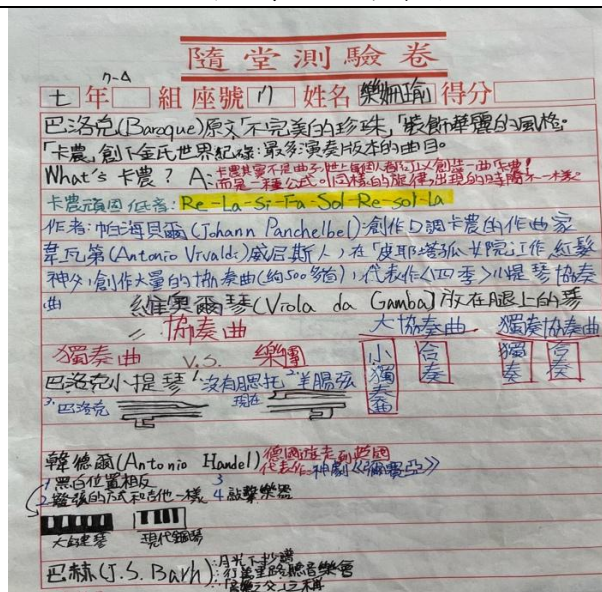 隨堂測驗卷
7-4
七年 組 座號17 姓名 樂姍瑜 得分
巴洛克(Baroque)原文「不完美的珍珠」裝飾華麗的風格。
「卡農」創下金氏世界紀錄:最多演奏版本的曲目。
What's 卡農? A:卡農其實不是曲子,世上每個人都可以創造一曲作農!
而是一種公式。同樣的旋律,出現的時間不一樣。
卡農頑固低音: Re-La-Si-Fa-Sol-Re-sol-la
作者:帕海貝爾(Johann Panchelbel):創作D調卡農的作曲家
韋瓦第(Antonio Vivalds)威尼斯人,在「皮耶塔孤女院」工作,紅髮
神父,創作大量的協奏曲(約500多首),代表作《四季》小提琴協奏
曲 維奧爾琴(Viola da Gamba)放在腿上的琴
協奏曲 大協奏曲 獨奏協奏曲
獨奏曲 V.S. 樂團 小獨奏 合奏 獨奏 合奏
巴洛克小提琴 1.沒有腮托 2.羊腸弦
3.巴洛克 現在
韓德爾(Antonio Handel)德國
代表作:神劇《彌賽亞》
1.黑白位置相反 3
2.發弦的方式和吉他一樣 4 敲擊樂器
大鍵琴 現代鋼琴
巴赫(J.S. Barh):月光下抄譜
行萬里路聽音樂會
「音樂之父」之稱